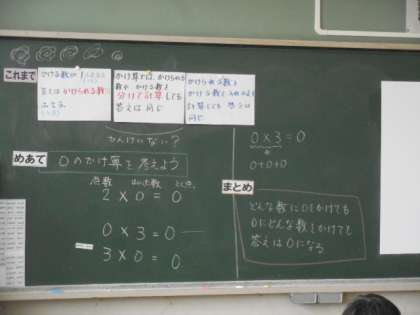 これまで
かける数が1
答えはかけられる数
ふえる
かけ算では、かけられる
数や かける数を
分けて計算しても
答えは同じ
かけられる数と
かける数を入れかえて
計算しても 答えは
同じ
かんけいない?
めあて
0のかけ算を答えよう
点数
2×0=0
0×3=0
3×0=0
0×3=0
0+0+0
まとめ
どんな数に0をかけても
0にどんな数をかけても
答えは0になる